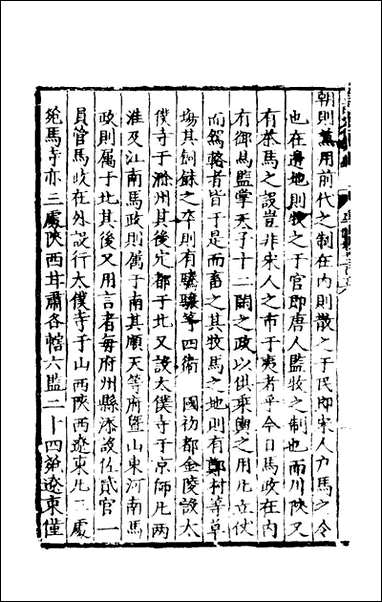 朝則蒹用前代之制在内則散之于民即宋人户馬之令
也在邊地則牧之于官即唐人監牧之制也而川陜又
有茶馬之設豈非宋人之市于夷者乎今日馬政在内
有御馬監掌天子十二閑之政以供乗輿之用凡立仗
而駕輅者皆于是而畜之其牧馬之地則有鄭村等草
塲其飼秣之卒則有騰驤等四衛　國初都金陵設太
僕寺于滁州其後定都于北又設太僕寺于京師凡兩
淮及江南馬政則属于南其順天等府曁山東河南馬
政則属于北其後又用言者毎府州縣添設佐貳官一
員管馬政在外設行太僕寺于山西陜西遼東凡三處
苑馬寺亦三處陜西甘肅各轄六監二十四苑遼東僅